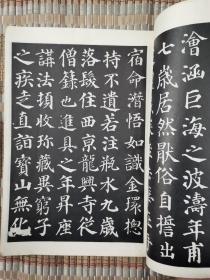 澮涵巨海之波濤年甫
七歲居然猒俗自誓出
宿命潛悟如識金環揔
持不遺若注瓶水九歲
落髮住西京龍興寺從
僧籙也進具之年昇座
講法頃收珍藏異窮子
之疾走直詣寶山無化